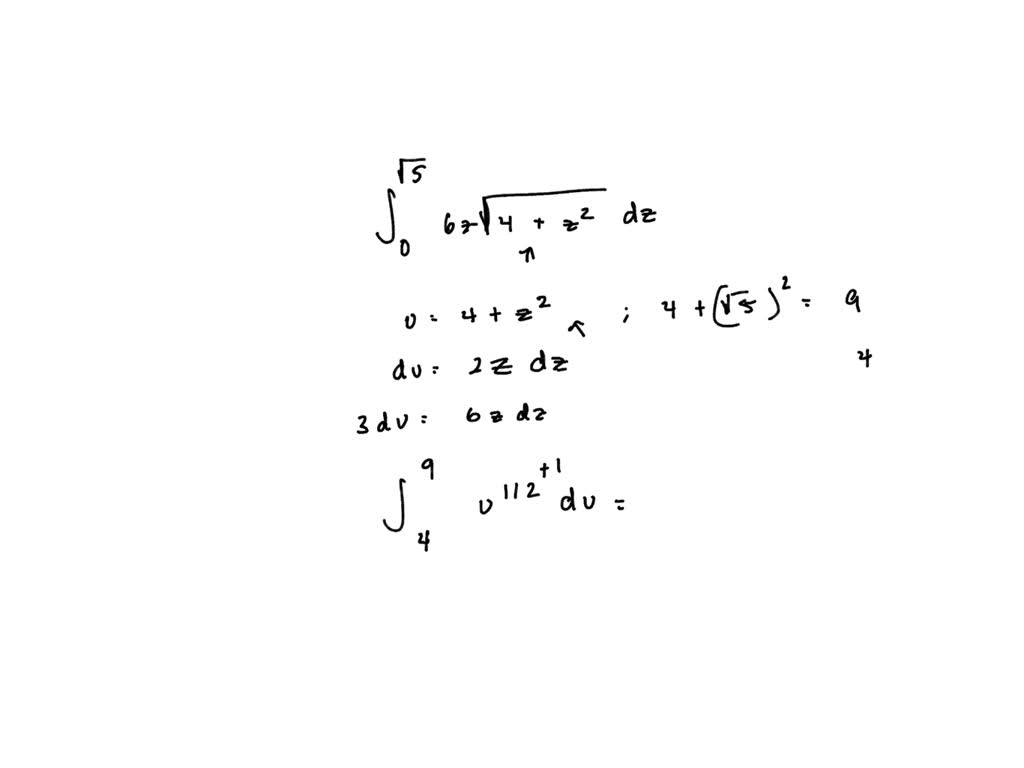 ∫₀^√5 6z√(4 + z²) dz
↑
u = 4 + z² ↖ ; 4 + (√5)² = 9
du = 2z dz 4
3du = 6z dz
∫₄⁹ u^(1/2 +1) du =